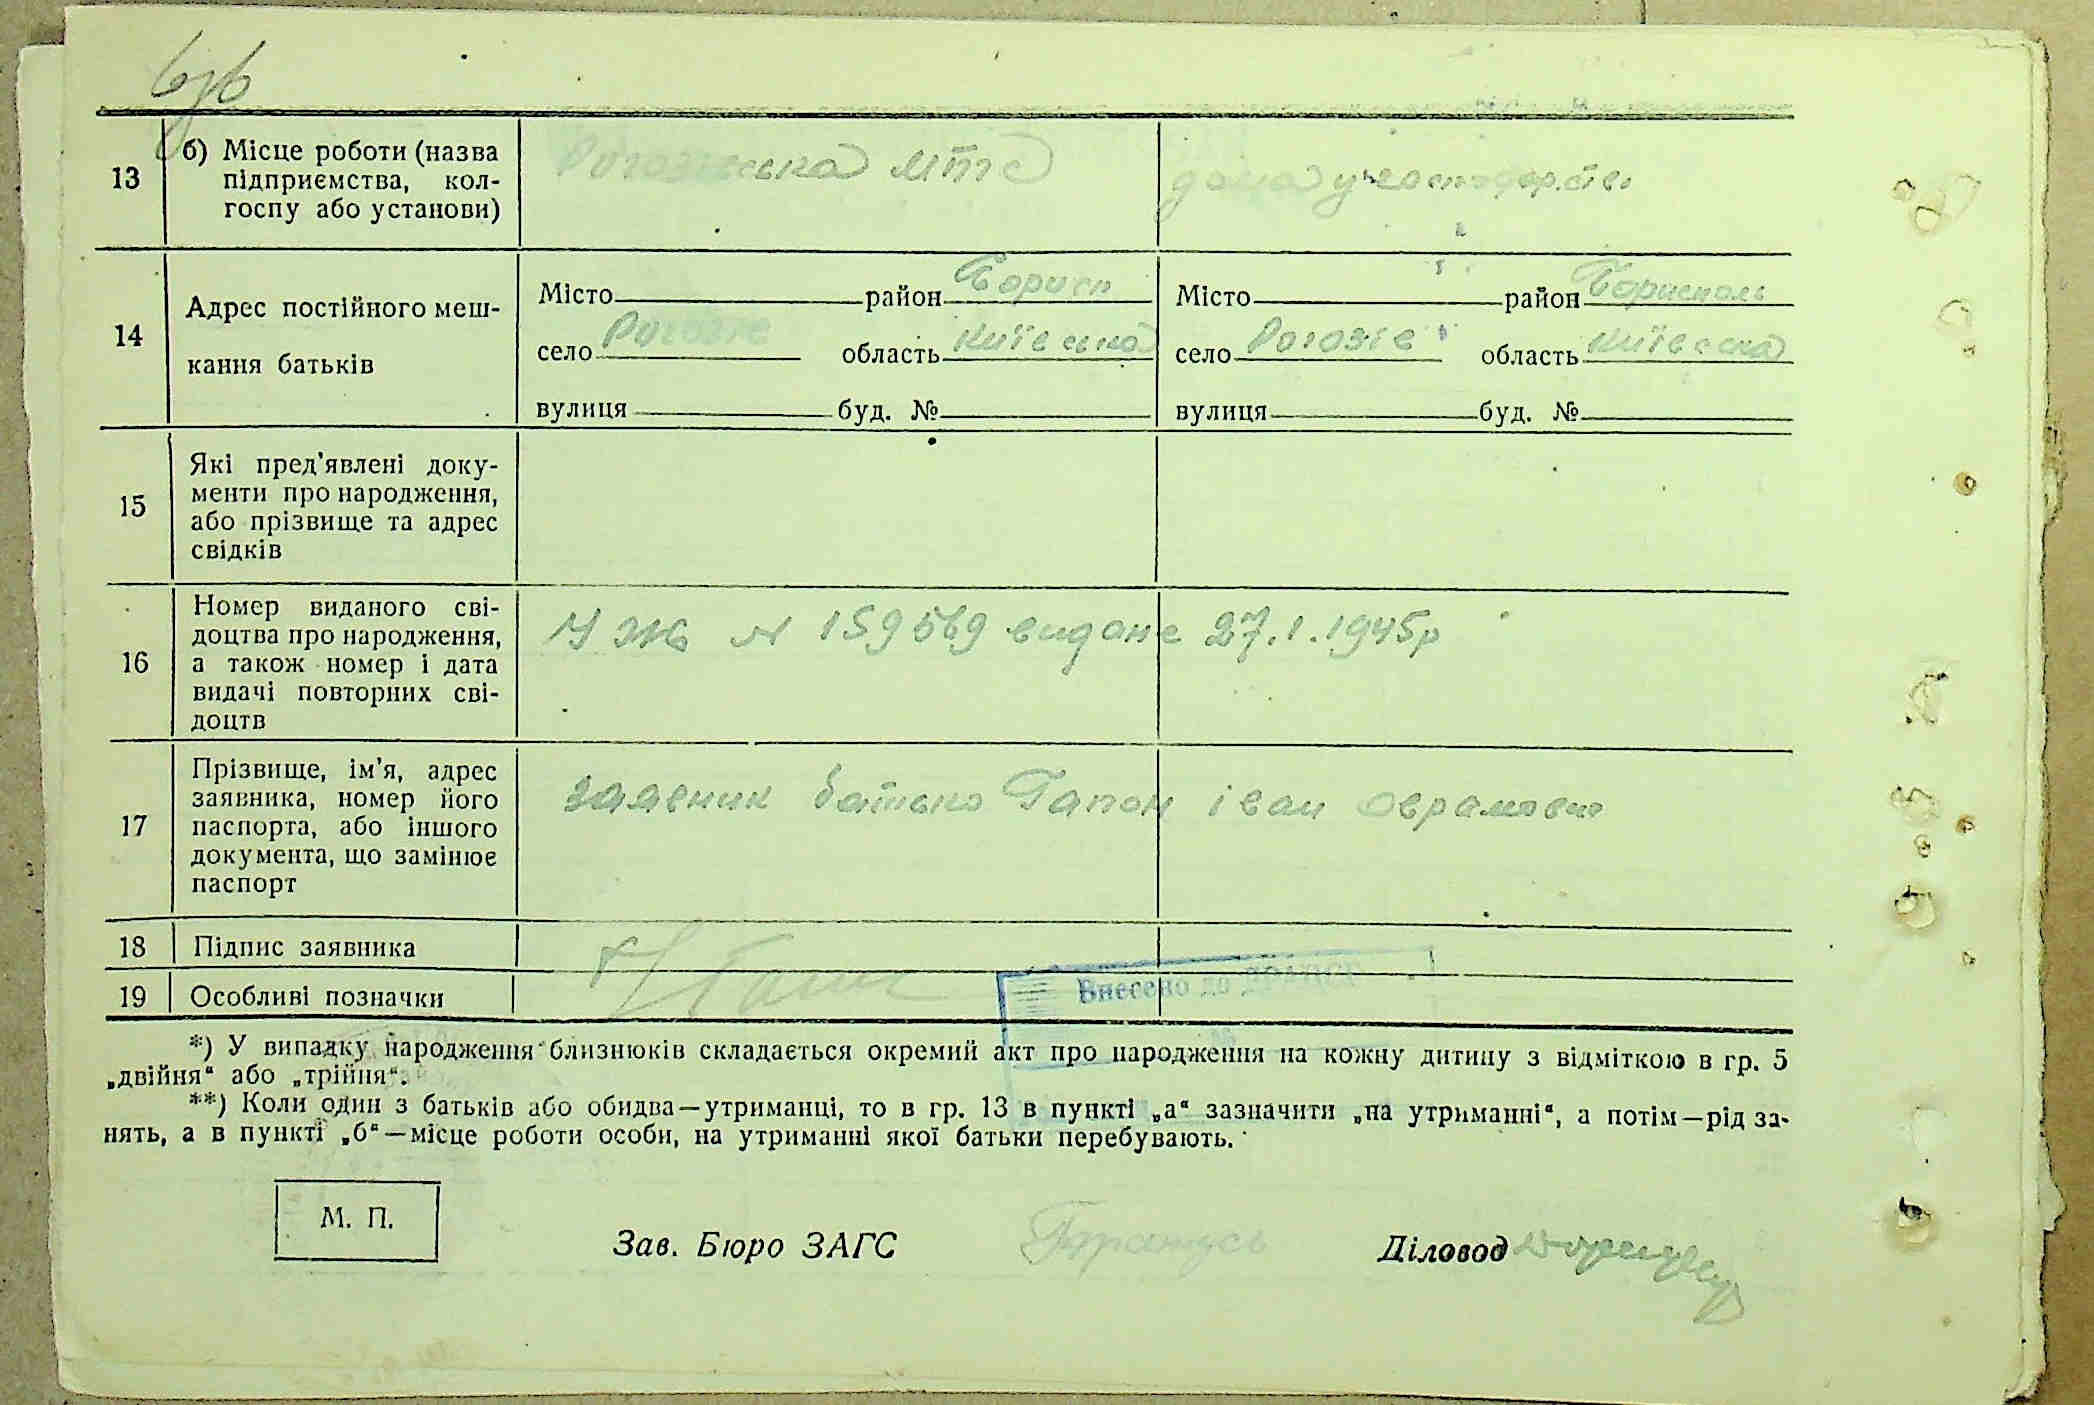 13
б) Місце роботи (назва
підприємства, кол-
госпу або установи)
Рогозівська МТС
дома у господарстві
14
Адрес постійного меш-
кання батьків
Місто район Борисп
село Рогозів область Київська
вулиця буд. №
Місто район Бориспіль
село Рогозів область Київська
вулиця буд. №
15
Які пред'явлені доку-
менти про народження,
або прізвище та адрес
свідків
16
Номер виданого сві-
доцтва про народження,
а також номер і дата
видачі повторних сві-
доцтв
N 159569 видане 27.1.1945р
17
Прізвище, ім'я, адрес
заявника, номер його
паспорта, або іншого
документа, що замінює
паспорт
заявник батько Гапон іван Оврамович
18 Підпис заявника
19 Особливі позначки
Внесено до ДРАЦСГ
*) У випадку народження близнюків складається окремий акт про народження на кожну дитину з відміткою в гр. 5
„двійня“ або „трійня“.
**) Коли один з батьків або обидва—утриманці, то в гр. 13 в пункті „а“ зазначити „на утриманні“, а потім—рід за-
нять, а в пункті „б“—місце роботи особи, на утриманні якої батьки перебувають.
М. П.
Зав. Бюро ЗАГС
Діловод